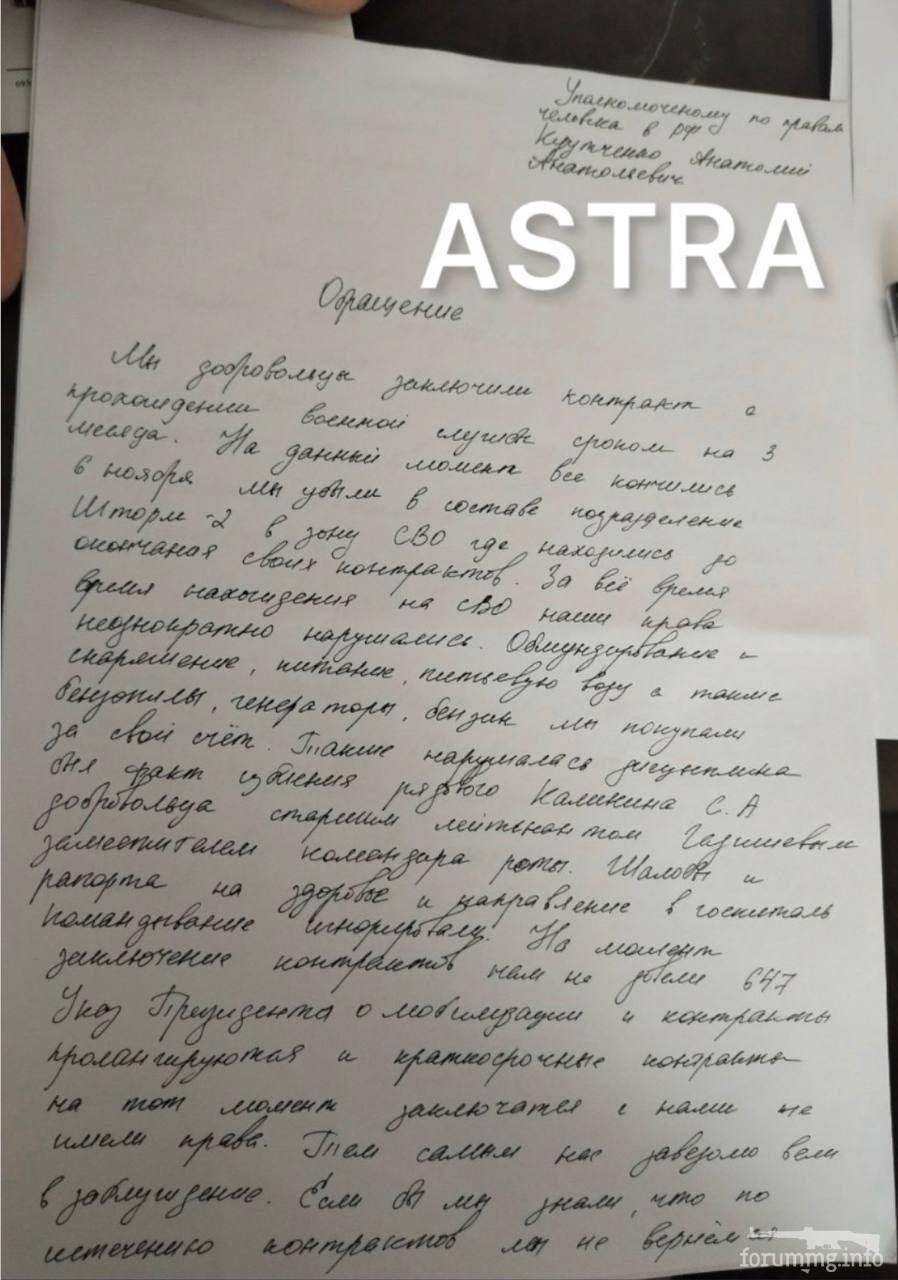 Уполномоченому по правам
человека в РФ
Крутченко Анатолий
Анатольевич
ASTRA
Обращение
Мы добровольцы заключили контракт о
прохождении военной службы сроком на 3
месяца. На данный момент все кончились
6 ноября мы убыли в составе подразделение
Шторм-2 в зону СВО где находились до
окончаная своих контрактов. За всё время
время нахождения на СВО наши права
неоднократно нарушались. Обмундирование и
снаряжение, питание, питьевую воду а также
бензопилы, генераторы, бензин мы покупали
за свой счёт. Также нарушалась дисцыплина
был факт избиения рядового Каликина С.А
добровольца старшим лейтенантом
заместителем командира роты. Жалобы и
рапорта на здоровье и направление в госпиталь
командывание игнорировали. На момент
заключение контрактов нам не довели 647
Указ Президента о мобилизации и контракты
пролангируются и краткосрочные контракты
на тот момент заключатся с нами не
имели права. Тем самым нас заведомо вели
в заблуждение. Если бы мы знали, что по
истечению контрактов мы не вернёмся
forummg.info